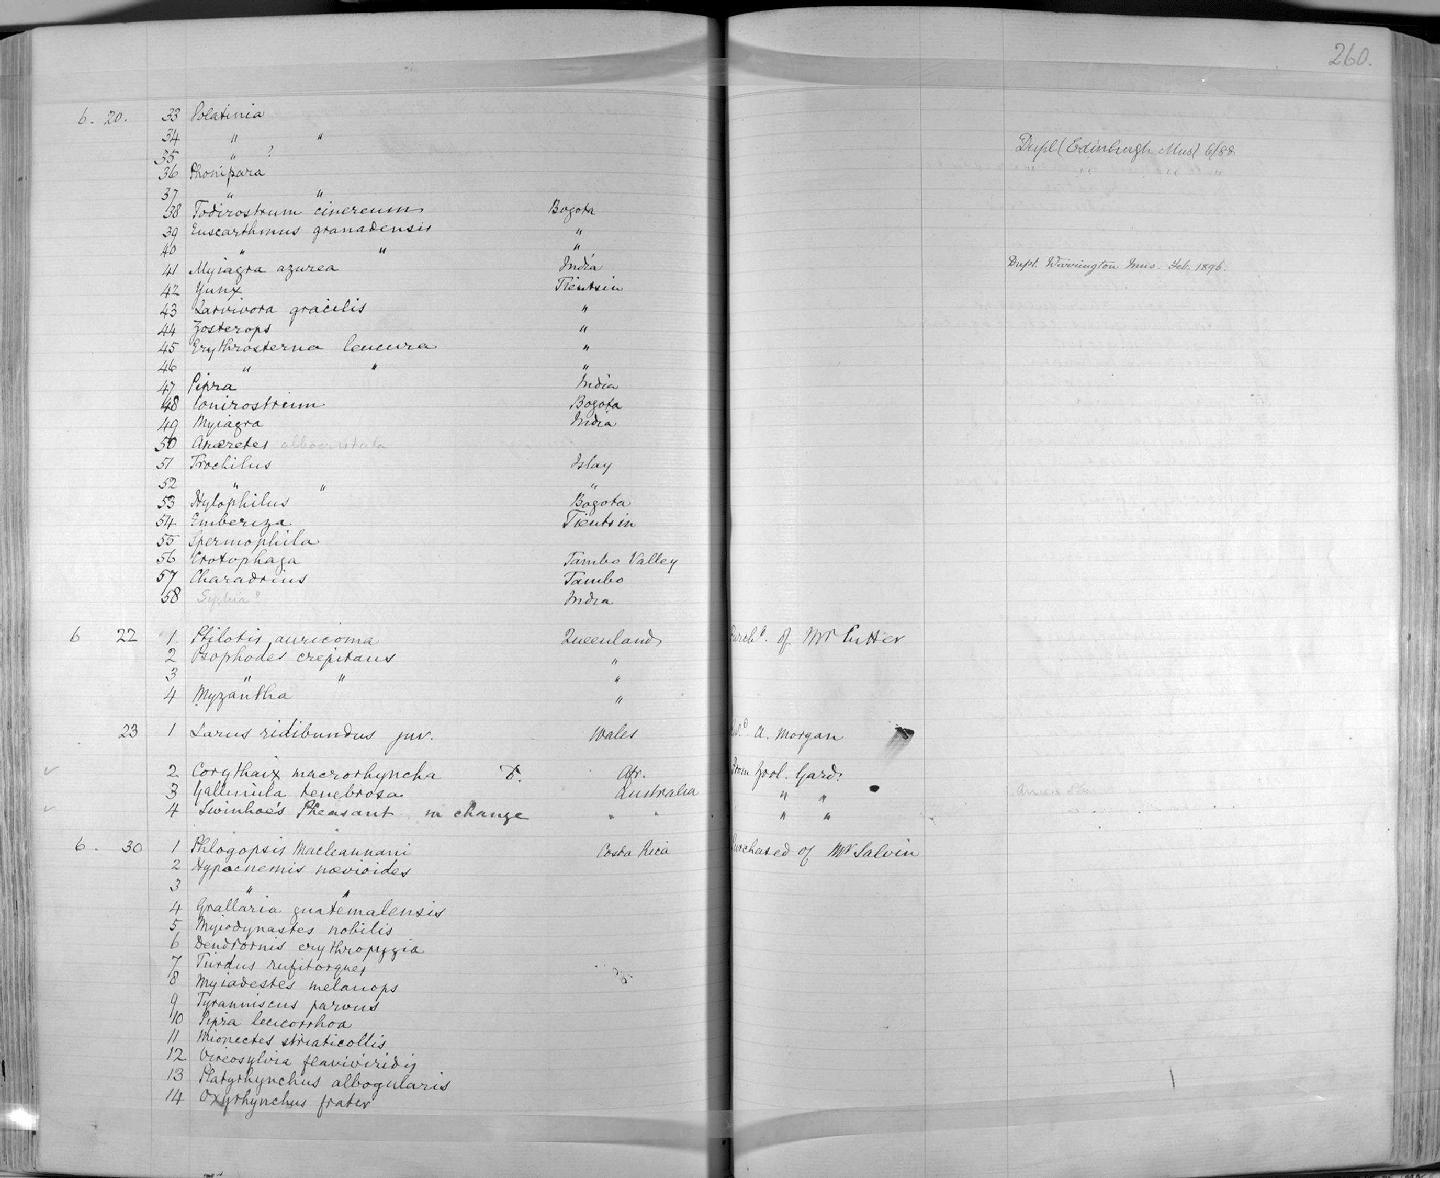 260.
6. 20. 33 Volatinia
34 " "
35 " ? Dupl (Edinburgh Mus) 6/88
36 Phonipara
37 " "
38 Todirostrum cinereum Bogota
39 Euscarthmus granadensis "
40 " " "
41 Myiagra azurea India Dupl. Warrington Mus. Feb. 1896.
42 Yunx Tientsin
43 Larvivora gracilis "
44 Zosterops "
45 Erythrosterna leucura "
46 " " "
47 Pipra India
48 Conirostrum Bogota
49 Myiagra India
50 Anæretes
51 Trochilus Islay
52 " " "
53 Hylophilus Bogota
54 Emberiza Tientsin
55 Spermophila
56 Crotophaga Tambo Valley
57 Charadrius Tambo
58 Siphia? India
6 22 1 Ptilotis auricoma Queenland Purchd. of Mr Cutter
2 Psophodes crepitans "
3 " " "
4 Myzantha "
23 1 Larus ridibundus juv. Wales A. Morgan
2 Corythaix macrorhyncha D. Afr. From Zool. Gard:
3 Gallinula tenebrosa Australia " "
4 Swinhoe's Pheasant in change " " " "
6. 30 1 Phlogopsis Macleannani Costa Rica Purchased of Mr Salvin
2 Hypocnemis nævioides
3 " "
4 Grallaria guatemalensis
5 Myiodynastes nobilis
6 Dendrornis erythropygia
7 Turdus rufitorques
8 Myiadestes melanops
9 Tyranniscus parvus
10 Pipra leucorrhoa
11 Mionectes striaticollis
12 Vireosylvia flaviviridis
13 Platyrhynchus albogularis
14 Oxyrhynchus frater